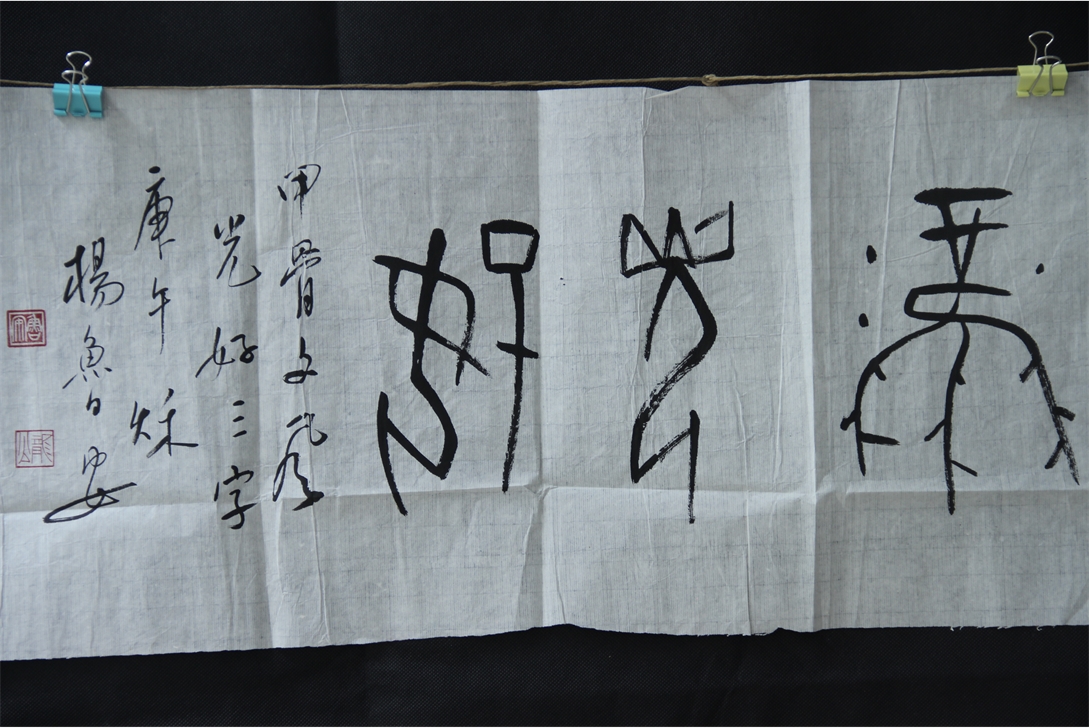 風光好
甲骨文風
光好三字
庚午秌
楊魯安